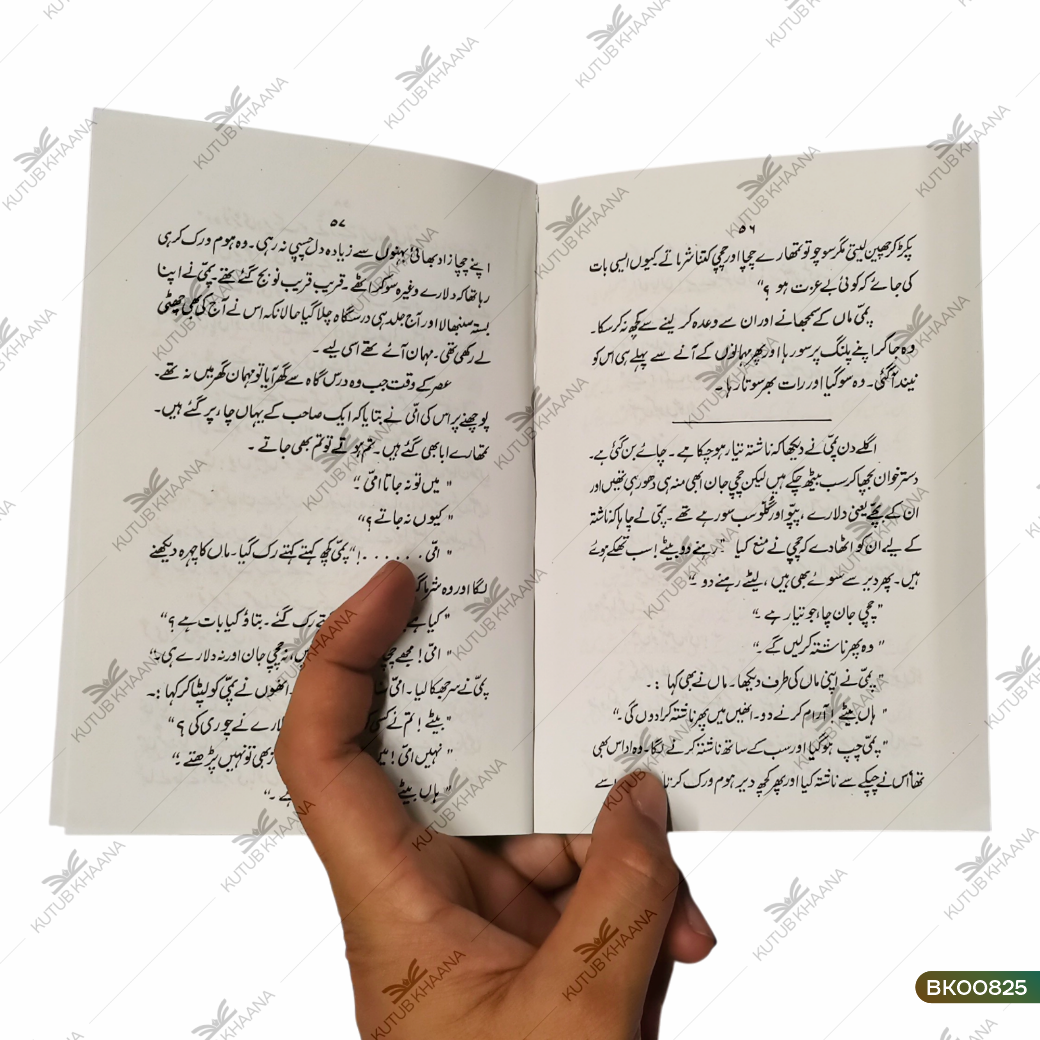 ۵۶
پکڑ کر چھین لیتی مگر سوچو تو تمھارے چچا اور چچی کتنا شرماتے کیوں ایسی بات
کی جائے کہ کوئی بے عزت ہو ؟“
پمّی ماں کے سمجھانے اور ان سے وعدہ کر لینے سے کچھ نہ کرسکا۔
وہ جاکر اپنے پلنگ پر سو رہا اور پھر مہمانوں کے آنے سے پہلے ہی اس کو
نیند آگئی۔ وہ سو گیا اور رات بھر سوتا رہا۔
اگلے دن پمّی نے دیکھا کہ ناشتہ تیار ہوچکا ہے ۔ چائے بن گئی ہے۔
دستر خوان بچھا کر سب بیٹھ چکے ہیں لیکن چچی جان ابھی منہ ہی دھو رہی تھیں اور
ان کے بچّے یعنی دلارے ، پپّو اور گلّو سب سو رہے تھے ۔ پمّی نے چاہا کہ ناشتہ
کے لیے ان کو اٹھا دے کہ چچی نے منع کیا ” رہنے دو بیٹے ! سب تھکے ہوئے
ہیں۔ پھر دیر سے سوئے بھی ہیں ، لیٹے رہنے دو ۔“
” چچی جان چاء جو تیار ہے ۔“
” وہ پھر ناشتہ کرلیں گے ۔“
” پمّی نے اپنی ماں کی طرف دیکھا۔ ماں نے بھی کہا : ۔
” ہاں بیٹے ! آرام کرنے دو۔ انھیں میں پھر ناشتہ کرادوں گی ۔“
” پمّی چپ ہوگیا اور سب کے ساتھ ناشتہ کرنے لگا۔ وہ اداس بھی
تھا اس نے چپکے سے ناشتہ کیا اور پھر کچھ دیر ہوم ورک کرتا اسے
۵۷
اپنے چچا زاد بھائی بہنوں سے زیادہ دل چسپی نہ رہی ۔ وہ ہوم ورک کر ہی
رہا تھا کہ دلارے وغیرہ سو کر اٹھے ۔ قریب قریب نو بج گئے تھے۔ پمّی نے اپنا
بستہ سنبھالا اور آج جلد ہی درسگاہ چلا گیا حالانکہ اس نے آج کی بھی چھٹی
لے رکھی تھی۔ مہمان آئے تھے اسی لیے ۔
عصر کے وقت جب وہ درس گاہ سے گھر آیا تو مہمان گھر میں نہ تھے۔
پوچھنے پر اس کی امّی نے بتایا کہ ایک صاحب کے یہاں چاء پر گئے ہیں۔
تمھارے ابا بھی گئے ہیں۔ تم ہوتے تو تم بھی جاتے ۔
” میں تو نہ جاتا امّی ۔“
” کیوں نہ جاتے ؟“
” امّی ......!“ پمّی کچھ کہتے کہتے رک گیا۔ ماں کا چہرہ دیکھنے
لگا اور وہ شرما
” کیا رک گئے ۔ بتاؤ کیا بات ہے ؟“
” امّی ! مجھے نہ چچی جان اور نہ دلارے ہی ۔“
پمّی نے سر جھکا لیا ۔ امّی انھوں نے پمّی کو لپٹا کر کہا :۔
” بیٹے ! تم نے کسی دلارے نے چوری کی ؟“
” نہیں امّی ! بھی تو نہیں پڑھتے ۔“
” ہاں بیٹے ہے ۔“
KUTUB KHAANA
BK00825